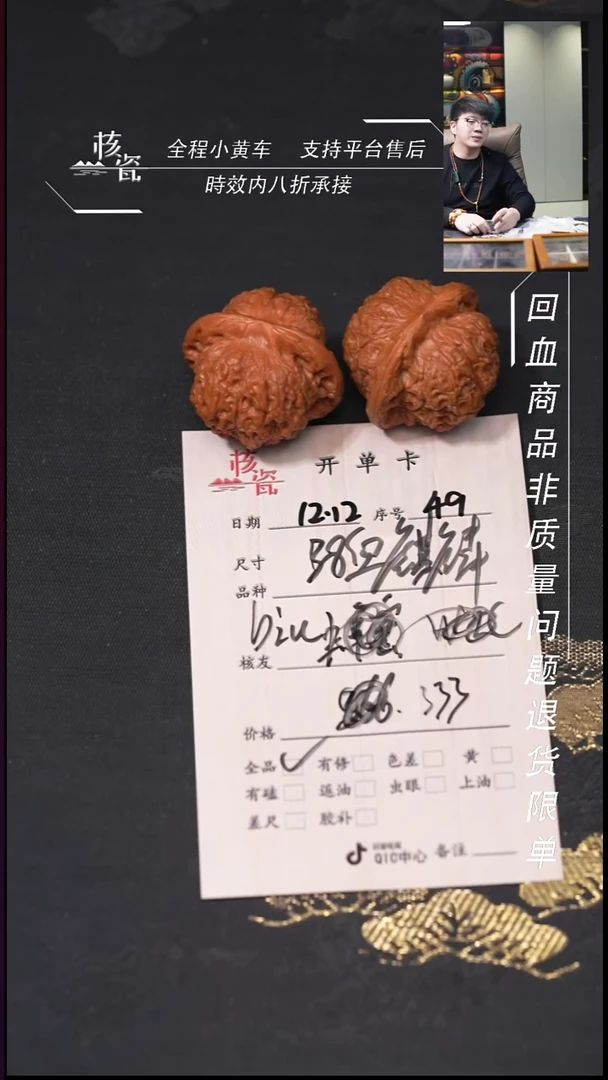 核瓷
全程小黄车 支持平台售后
時效内八折承接
回血商品非质量问题退货限单
核瓷
开单卡
日期 12.12 序号 49
尺寸
品种
核友
价格 333
全品 有修 色差 黄
有硅 返油 虫眼 上油
差尺 胶补
QIC中心 备注